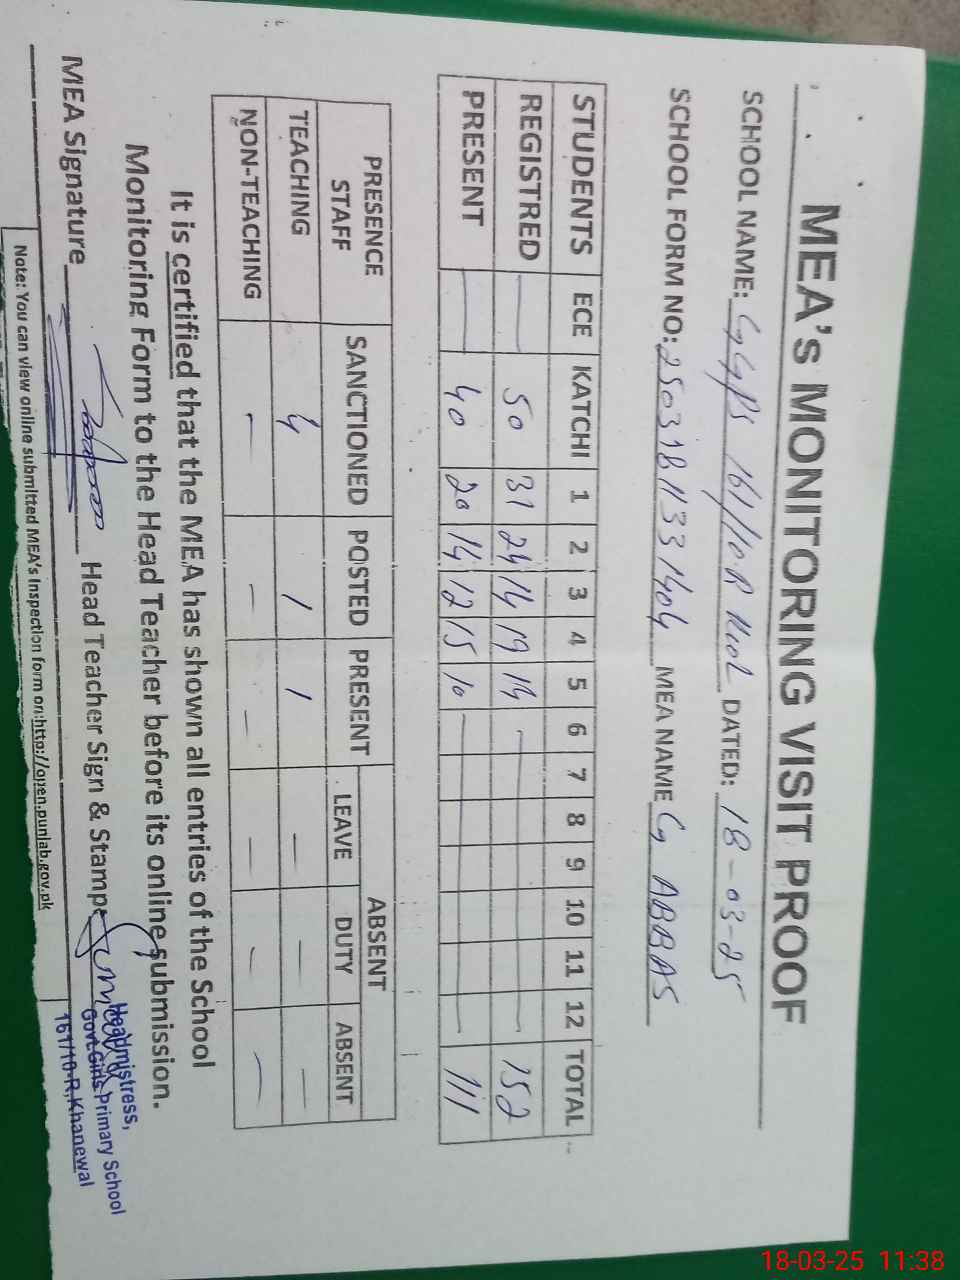 MEA's MONITORING VISIT PROOF
SCHOOL NAME: GGPS 161/10.R DATED: 18-03-25
SCHOOL FORM NO: MEA NAME G ABBAS
STUDENTS ECE KATCHI 1 2 3 4 5 6 7 8 9 10 11 12 TOTAL
REGISTRED — 50 31 24 14 19 14 — 152
PRESENT — 40 20 14 12 15 10 — 111
PRESENCE STAFF SANCTIONED POSTED PRESENT ABSENT
LEAVE DUTY ABSENT
TEACHING 4 1 1 — — —
NON-TEACHING - - - - - -
It is certified that the MEA has shown all entries of the School
Monitoring Form to the Head Teacher before its online submission.
MEA Signature Head Teacher Sign & Stamp:
Headmistress,
Govt.Girls Primary School
161/10-R,Khanewal
Note: You can view online submitted MEA's Inspection form on:http://open.punjab.gov.pk
18-03-25 11:38